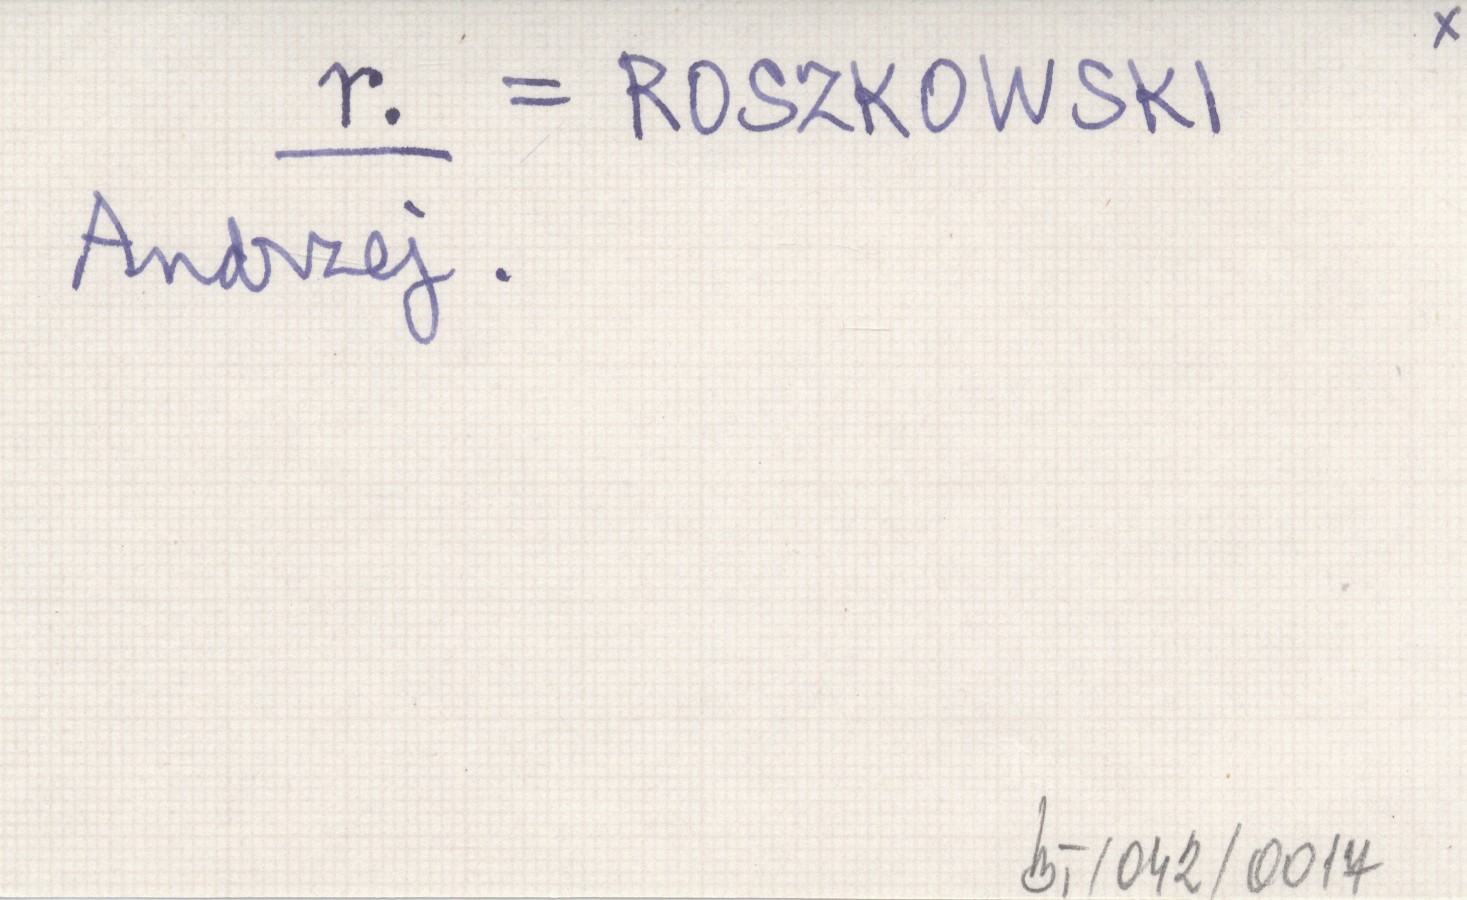 x
r. = ROSZKOWSKI
Andrzej.
/042/0017